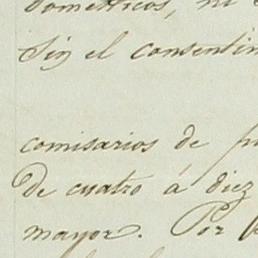 domésticos, ni
Sin el consentim
comisarios de
De cuatro á diez
mayor. Por